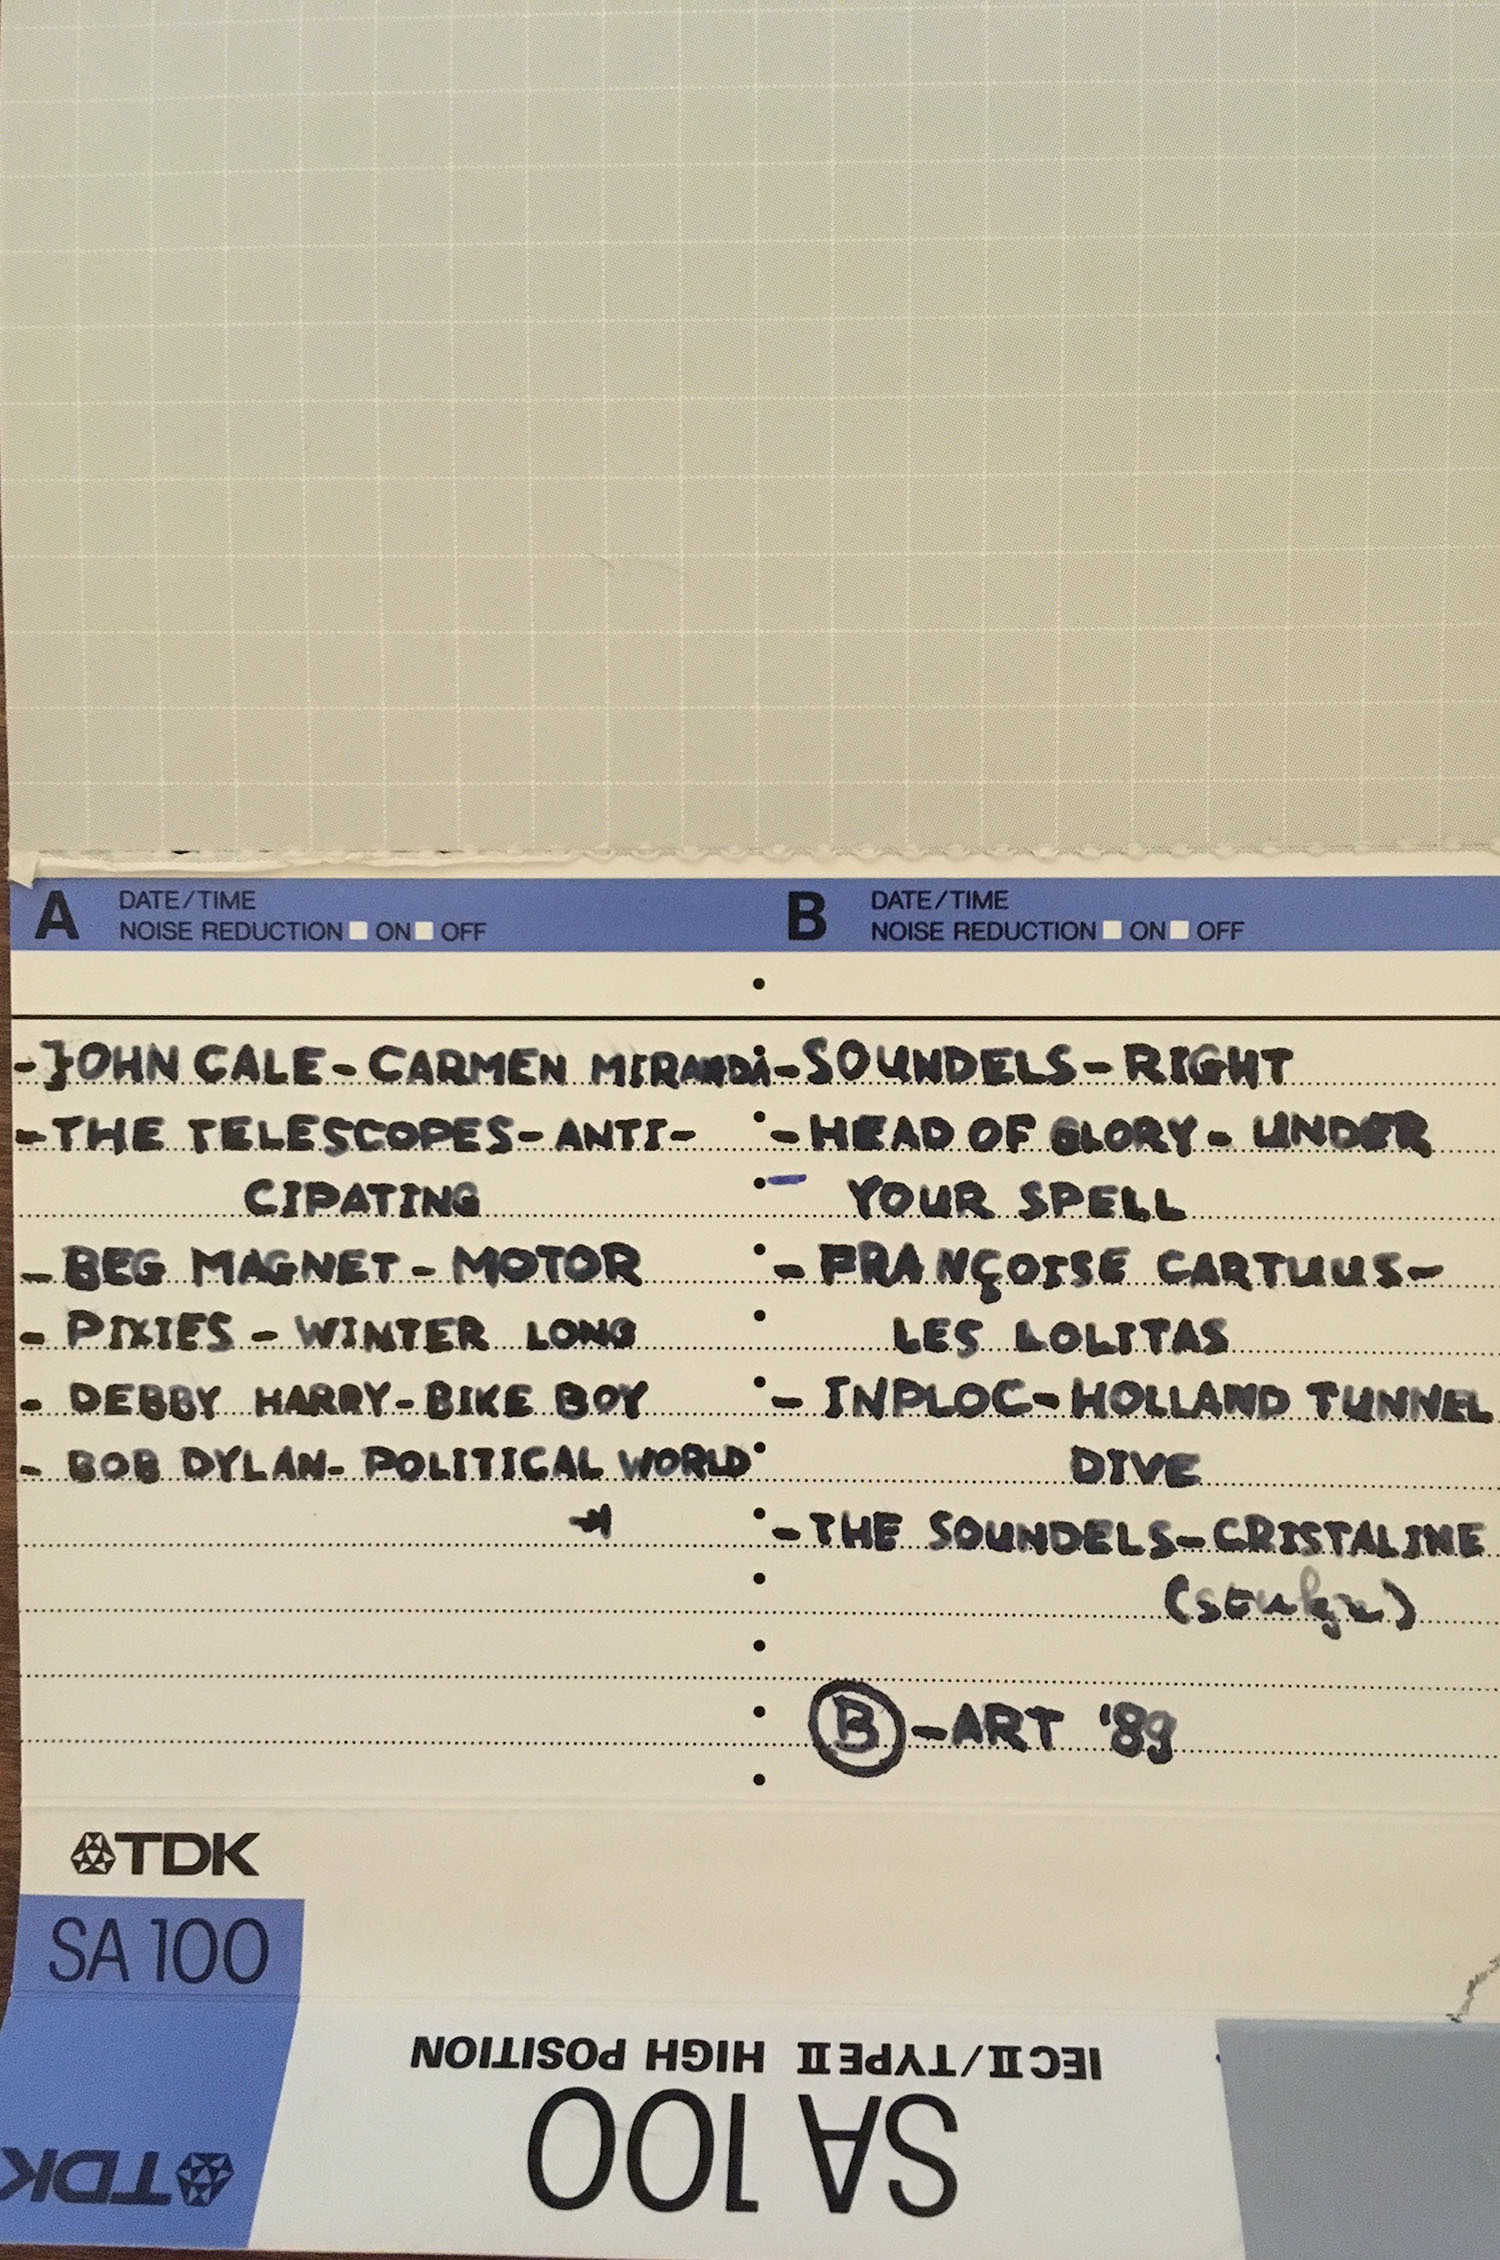 A DATE/TIME
NOISE REDUCTION ON OFF
-JOHN CALE-CARMEN MIRANDA
-THE TELESCOPES-ANTI-
CIPATING
-BEG MAGNET-MOTOR
-PIXIES-WINTER LONG
-DEBBY HARRY-BIKE BOY
-BOB DYLAN-POLITICAL WORLD
B DATE/TIME
NOISE REDUCTION ON OFF
-SOUNDELS-RIGHT
-HEAD OF GLORY-UNDER
YOUR SPELL
-FRANÇOISE CARTUUS-
LES LOLITAS
-INPLOC-HOLLAND TUNNEL
DIVE
-THE SOUNDELS-CRISTALINE
B-ART '89
TDK
SA 100
IEC II/TYPE II HIGH POSITION
SA 100
TDK